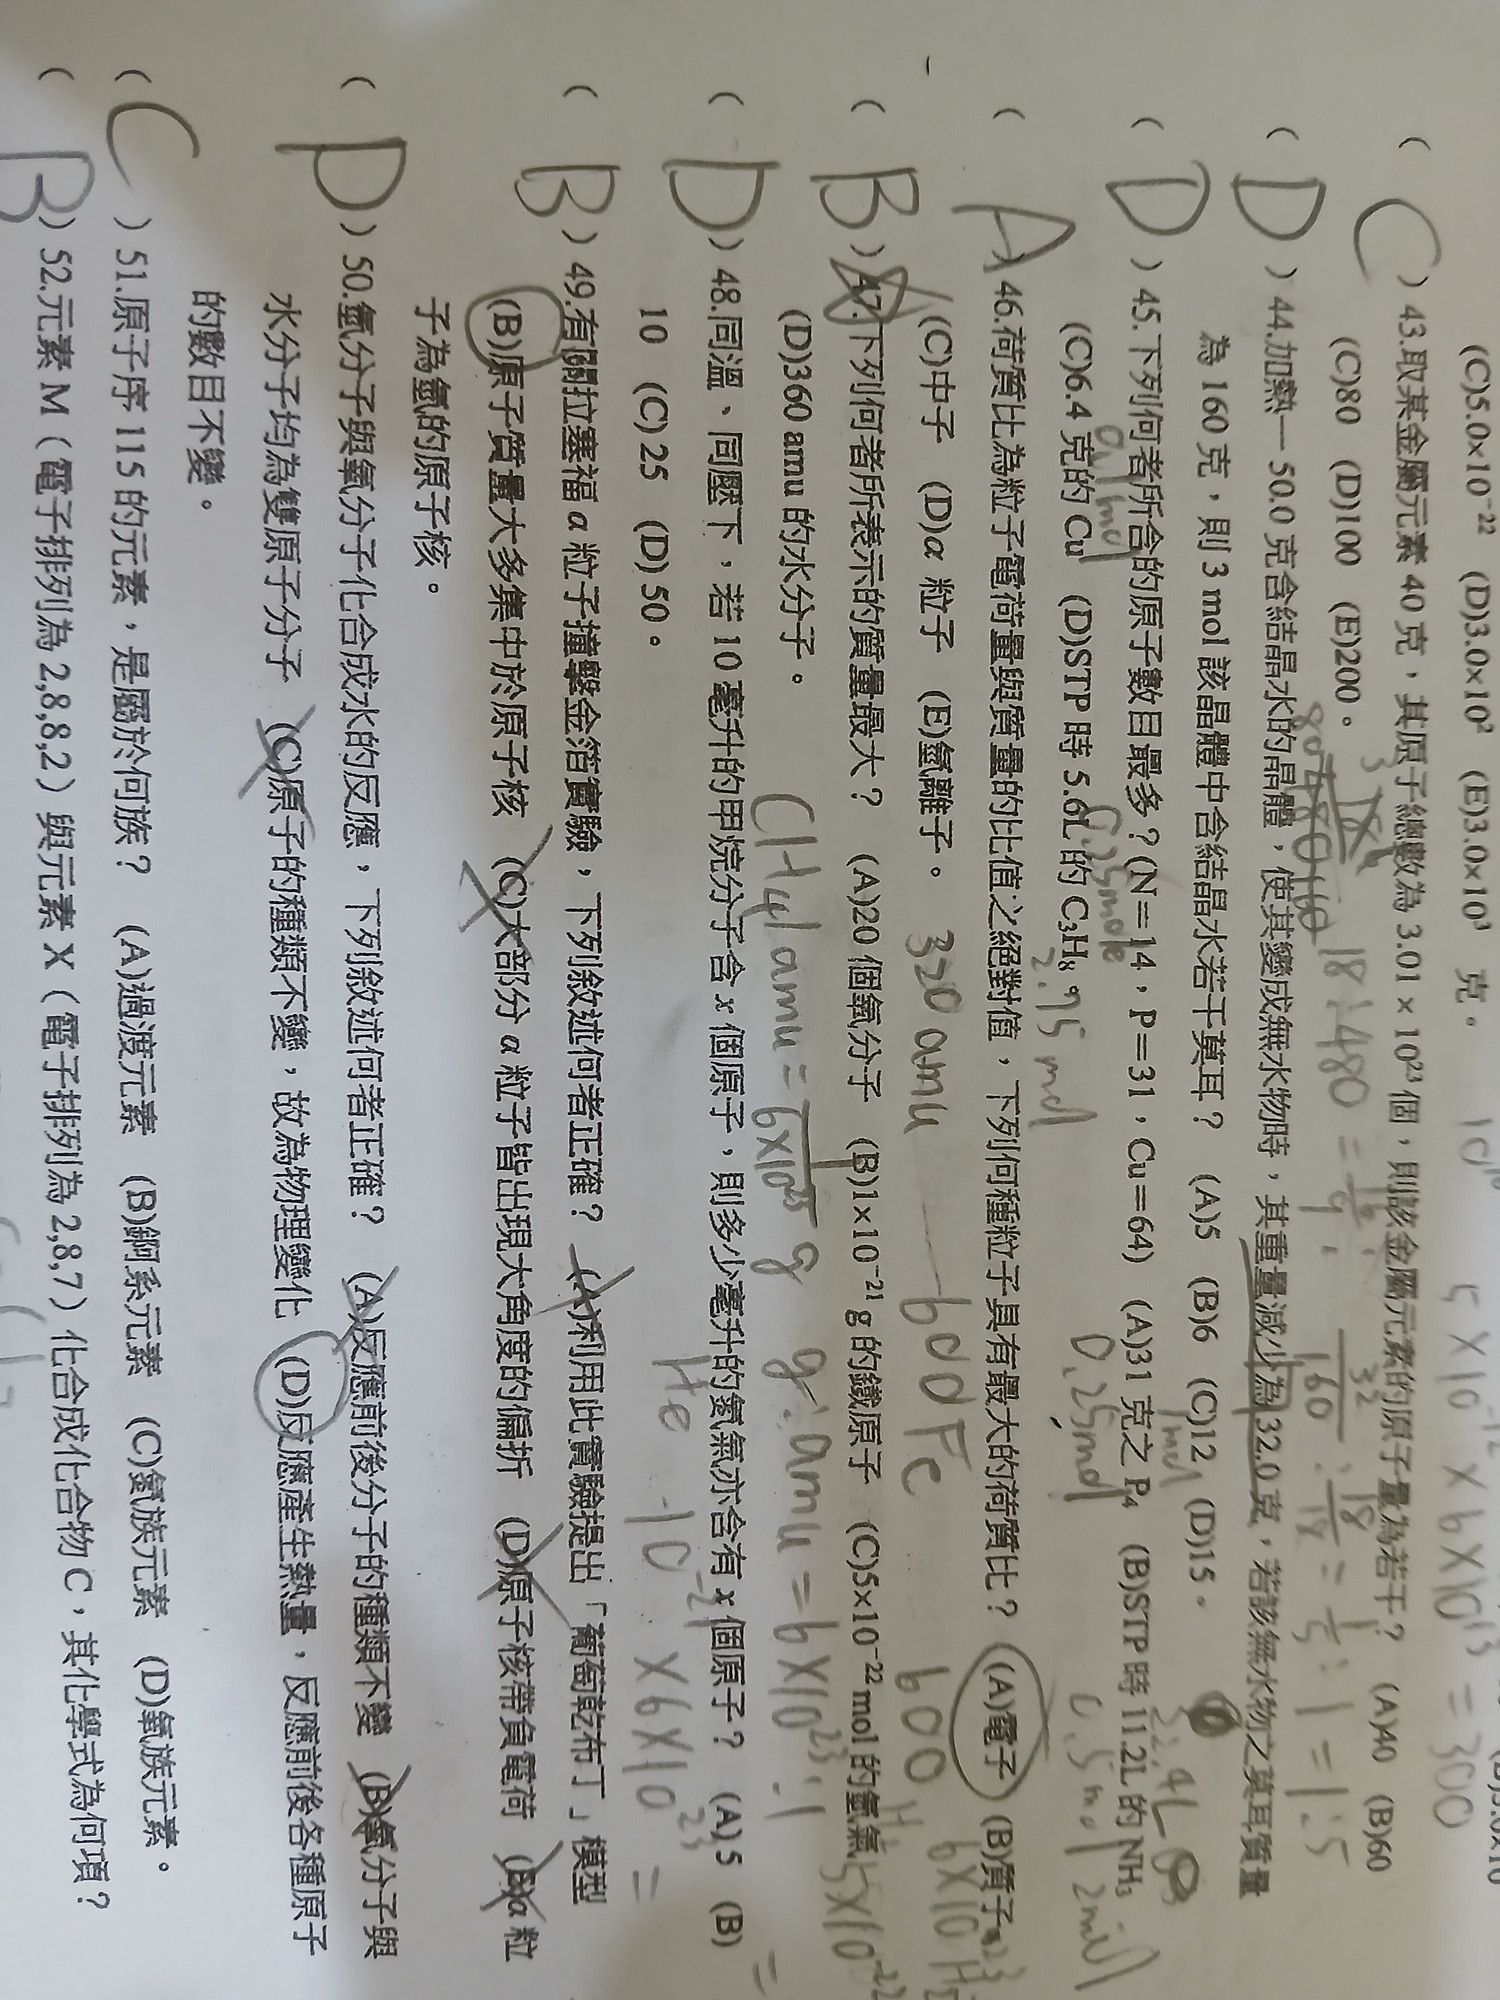 (C)5.0×10⁻²² (D)3.0×10² (E)3.0×10³ 克。
( C ) 43.取某金屬元素 40 克，其原子總數為 3.01 × 10²³ 個，則該金屬元素的原子量為若干？ (A)40 (B)60
(C)80 (D)100 (E)200。
( D ) 44.加熱一 50.0 克含結晶水的晶體，使其變成無水物時，其重量減少為 32.0 克，若該無水物之莫耳質量
為 160 克，則 3 mol 該晶體中含結晶水若干莫耳？ (A)5 (B)6 (C)12 (D)15。
( D ) 45.下列何者所含的原子數目最多？(N＝14，P＝31，Cu＝64) (A)31 克之 P₄ (B)STP 時 11.2L 的 NH₃
(C)6.4 克的 Cu (D)STP 時 5.6L 的 C₃H₈。
( A ) 46.荷質比為粒子電荷量與質量的比值之絕對值，下列何種粒子具有最大的荷質比？ (A)電子 (B)質子
(C)中子 (D)α 粒子 (E)氫離子。
( B ) 47.下列何者所表示的質量最大？ (A)20 個氧分子 (B)1×10⁻²¹ g 的鐵原子 (C)5×10⁻²² mol 的氫氣
(D)360 amu 的水分子。
( D ) 48.同溫、同壓下，若 10 毫升的甲烷分子含 x 個原子，則多少毫升的氦氣亦含有 x 個原子？ (A) 5 (B)
10 (C) 25 (D) 50。
( B ) 49.有關拉塞福 α 粒子撞擊金箔實驗，下列敘述何者正確？ (A)利用此實驗提出「葡萄乾布丁」模型
(B)原子質量大多集中於原子核 (C)大部分 α 粒子皆出現大角度的偏折 (D)原子核帶負電荷 (E)α 粒
子為氫的原子核。
( D ) 50.氫分子與氧分子化合成水的反應，下列敘述何者正確？ (A)反應前後分子的種類不變 (B)氧分子與
水分子均為雙原子分子 (C)原子的種類不變，故為物理變化 (D)反應產生熱量，反應前後各種原子
的數目不變。
( C ) 51.原子序 115 的元素，是屬於何族？ (A)過渡元素 (B)錒系元素 (C)氮族元素 (D)氧族元素。
( B ) 52.元素 M（電子排列為 2,8,8,2）與元素 X（電子排列為 2,8,7）化合成化合物 C，其化學式為何項？
5×10⁻¹² ×6×10¹³ = 300
18:480
0.1mol
0.25mole
2.75 mol
0.25mol
1mol
0.5mol 2mol
22.4L
320 amu
600 Fe
CH₄
1amu = 1/6×10²³ g
g:amu = 6×10²³:1
He
10⁻²¹ ×6×10²³ =